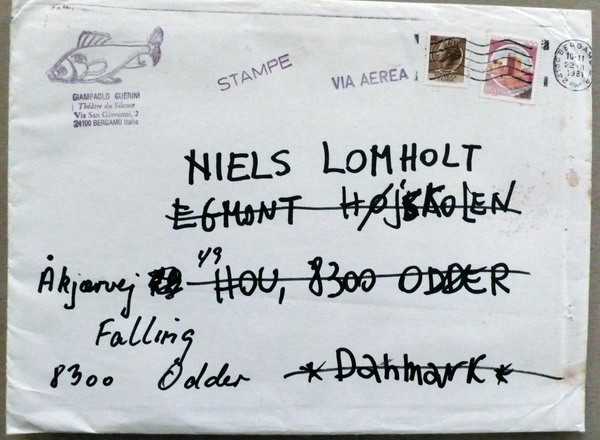 GIAMPAOLO GUERINI
Théâtre du Silence
Via San Giovanni, 2
24100 BERGAMO Italia
STAMPE
VIA AEREA
BERGAMO
16-11
1981
NIELS LOMHOLT
EGMONT HØJSKOLEN
Åkjærvej 49 HOU, 8300 ODDER
Falling
8300 Odder * Danmark *